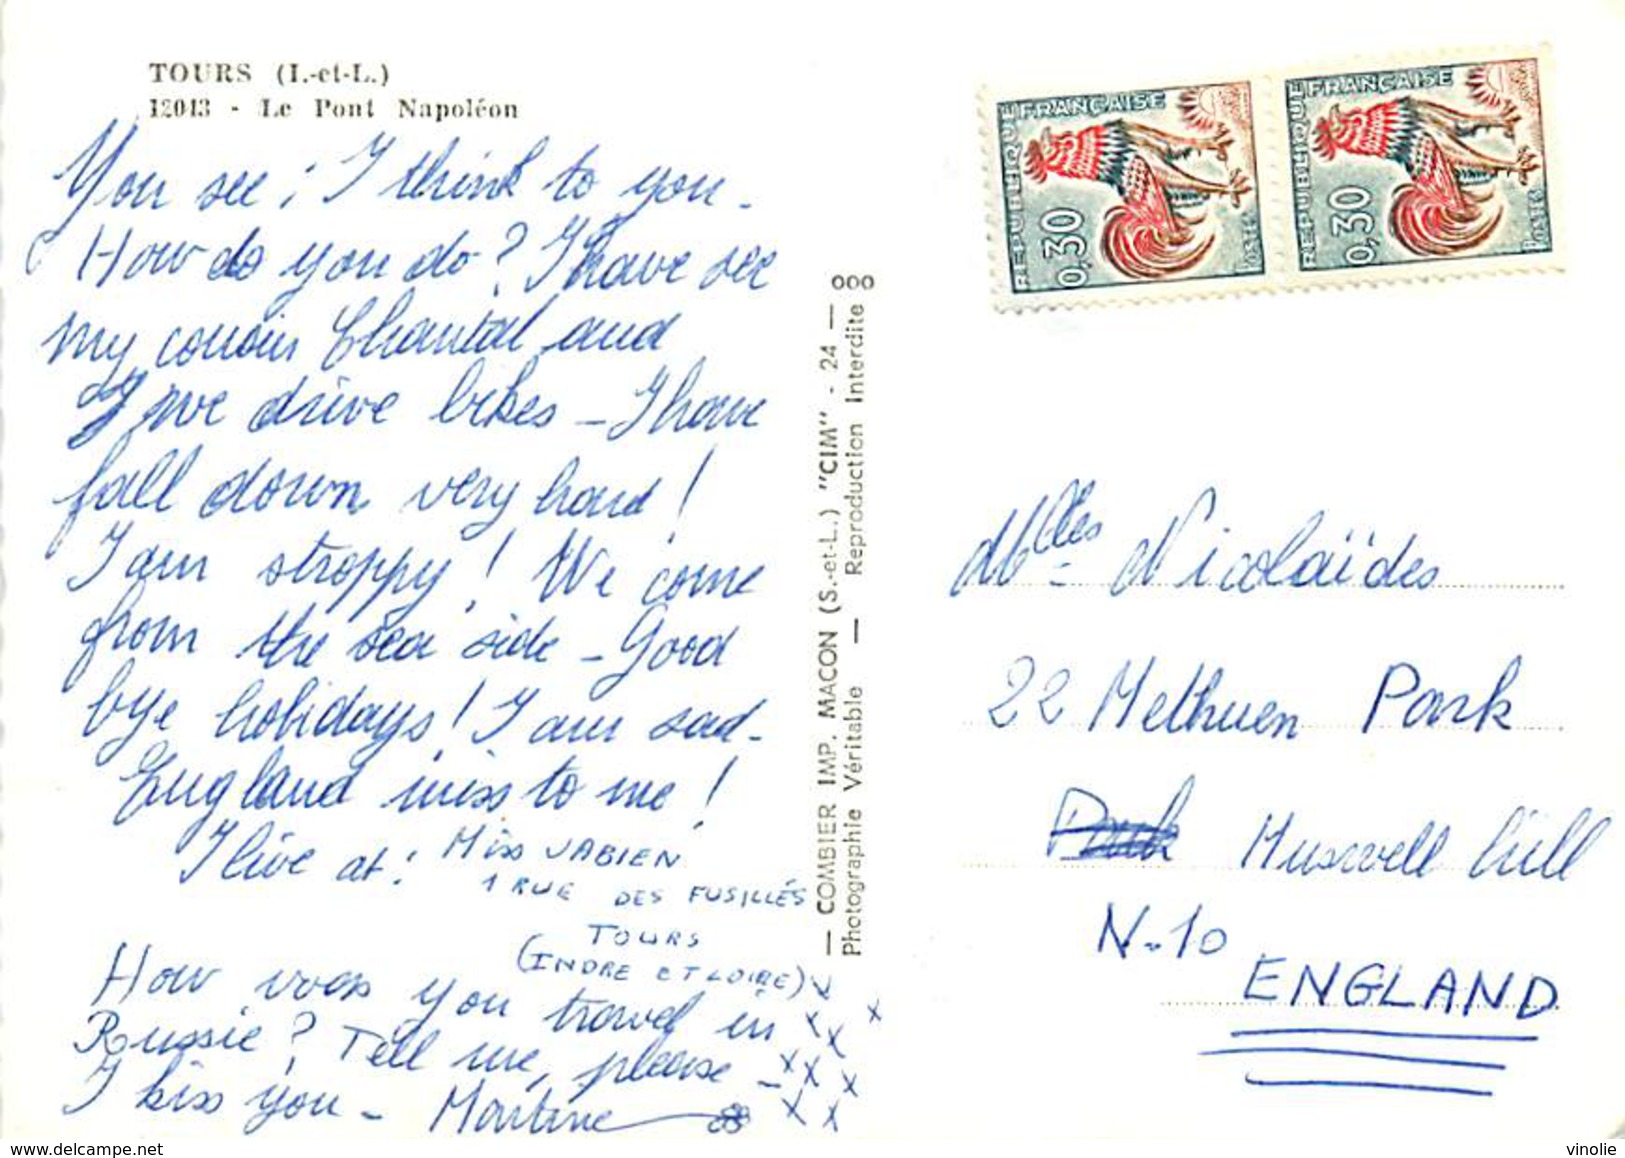 TOURS (I.-et-L.)
12043 - Le Pont Napoléon
You see ; I think to you -
How do you do ? I have see
my cousin Chantal and
I we drive bikes - I have
fall down very hard !
I am stroppy ! We come
from the sea side - Good
bye holidays ! I am sad -
England miss to me !
I live at : Miss JABIEN
1 RUE DES FUSILLÉS
TOURS
(INDRE ET LOIRE)
How was you travel in
Russie ? Tell me, please -
I kiss you - Martine
x x x x x x x x x x
— COMBIER IMP. MACON (S.-et-L.) "CIM" - 24 — 000
Photographie Véritable — Reproduction Interdite
REPUBLIQUE FRANÇAISE
0,30
POSTES
REPUBLIQUE FRANÇAISE
0,30
POSTES
Mlles Nicolaïdes
22 Methuen Park
Muswell hill
N-10
ENGLAND
vinolie